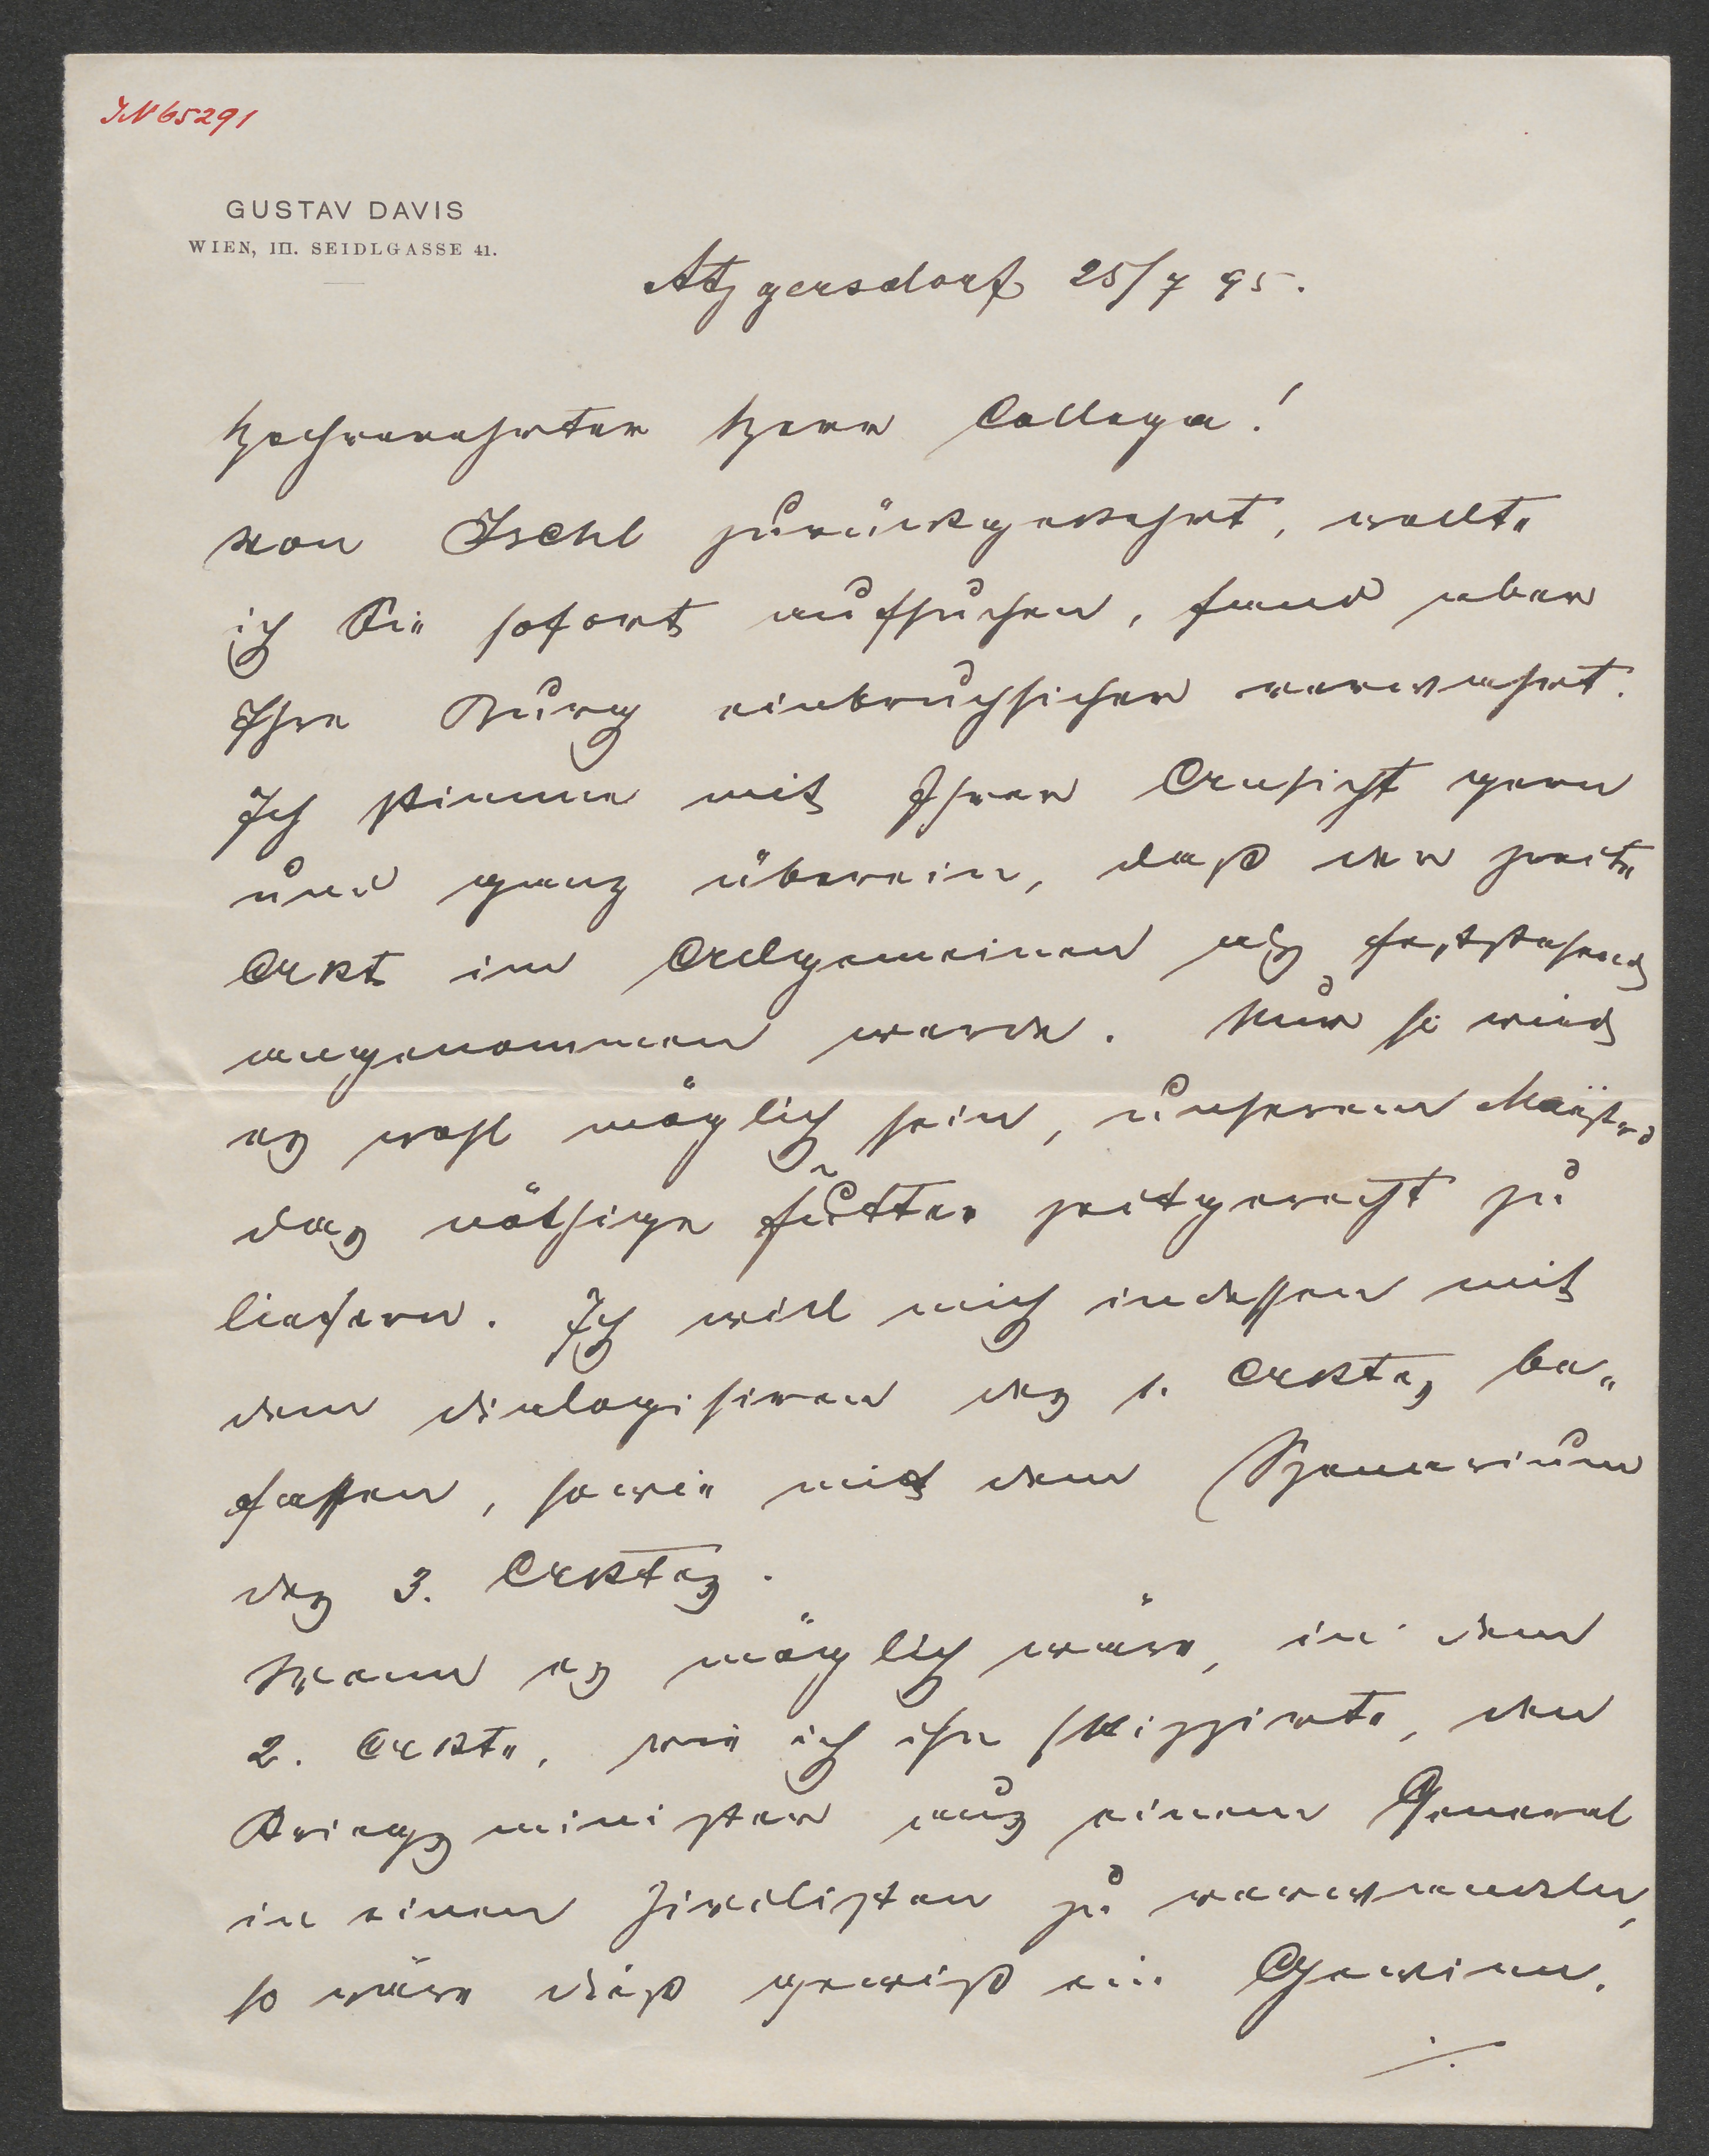 IN 65291
GUSTAV DAVIS
WIEN, III. SEIDLGASSE 41.
Atzgersdorf 25/7 95.
Hochverehrter Herr Collega!
Von Ischl zurückgekehrt, wollte
ich Sie sofort aufsuchen, fand aber
Ihre Burg einbruchsicher verwahrt.
Ich stimme mit Ihrer Ansicht gern
und ganz überein, daß der zweite
Akt im Allgemeinen als feststehend
angenommen werde. Nur so wird
es wohl möglich sein, unserem Maëstro
das nöthige Futter zeitgerecht zu
liefern. Ich will mich indessen mit
dem dialogisiren des 1. Aktes be-
fassen, sowie mit dem Szenarium
des 3. Aktes.
Wenn es möglich wäre, in dem
2. Akte, wie ich ihn skizzirte, den
Kriegsminister aus einem General
in einen Zivilisten zu verwandeln,
so wäre dieß gewiß ein Gewinn.
./.